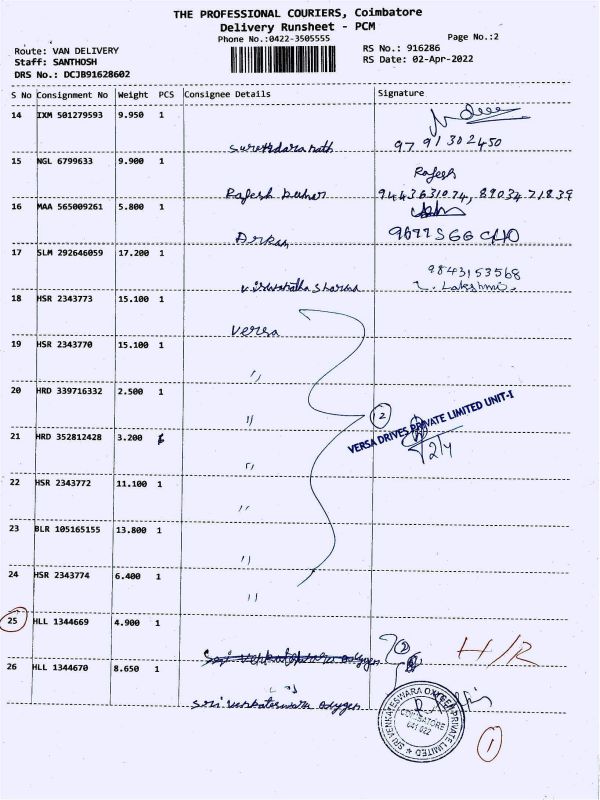 THE PROFESSIONAL COURIERS, Coimbatore
Delivery Runsheet - PCM
Phone No.:0422-3505555
Page No.:2
Route: VAN DELIVERY
RS No.: 916286
Staff: SANTHOSH
RS Date: 02-Apr-2022
DRS No.: DCJB91628602
S No Consignment No Weight PCS Consignee Details Signature
14 IXM 501279593 9.950 1
97 91302450
15 NGL 6799633 9.900 1
Rajesh
Rajesh
16 MAA 565009261 5.800 1
17 SLM 292646059 17.200 1
9843153568
L. Lakshmi.
18 HSR 2343773 15.100 1
Versa
19 HSR 2343770 15.100 1
"
20 HRD 339716332 2.500 1
"
2
VERSA DRIVES PRIVATE LIMITED UNIT-I
21 HRD 352812428 3.200
2/4
"
22 HSR 2343772 11.100 1
"
23 BLR 105165155 13.800 1
"
24 HSR 2343774 6.400 1
"
25 HLL 1344669 4.900 1
2
H/R
26 HLL 1344670 8.650 1
Sri Venkateswara Oxygen
SRI VENKATESHWARA OXYGEN PRIVATE LIMITED
COIMBATORE
641 022
1